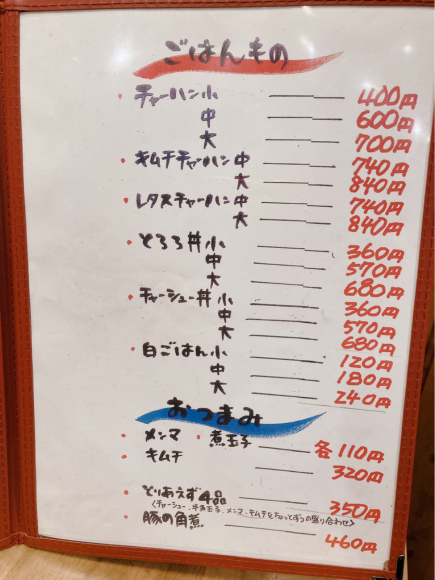 ごはんもの
・チャーハン小 400円
中 600円
大 700円
・キムチチャーハン中 740円
大 840円
・レタスチャーハン中 740円
大 840円
・とろろ丼小 360円
中 570円
大 680円
・チャーシュー丼小 360円
中 570円
大 680円
・白ごはん小 120円
中 180円
大 240円
おつまみ
・メンマ ・煮玉子 各110円
・キムチ 320円
・とりあえず4品 350円
(チャーシュー、半煮玉子、メンマ、キムチをちょっとずつの盛り合わせ)
・豚の角煮 460円